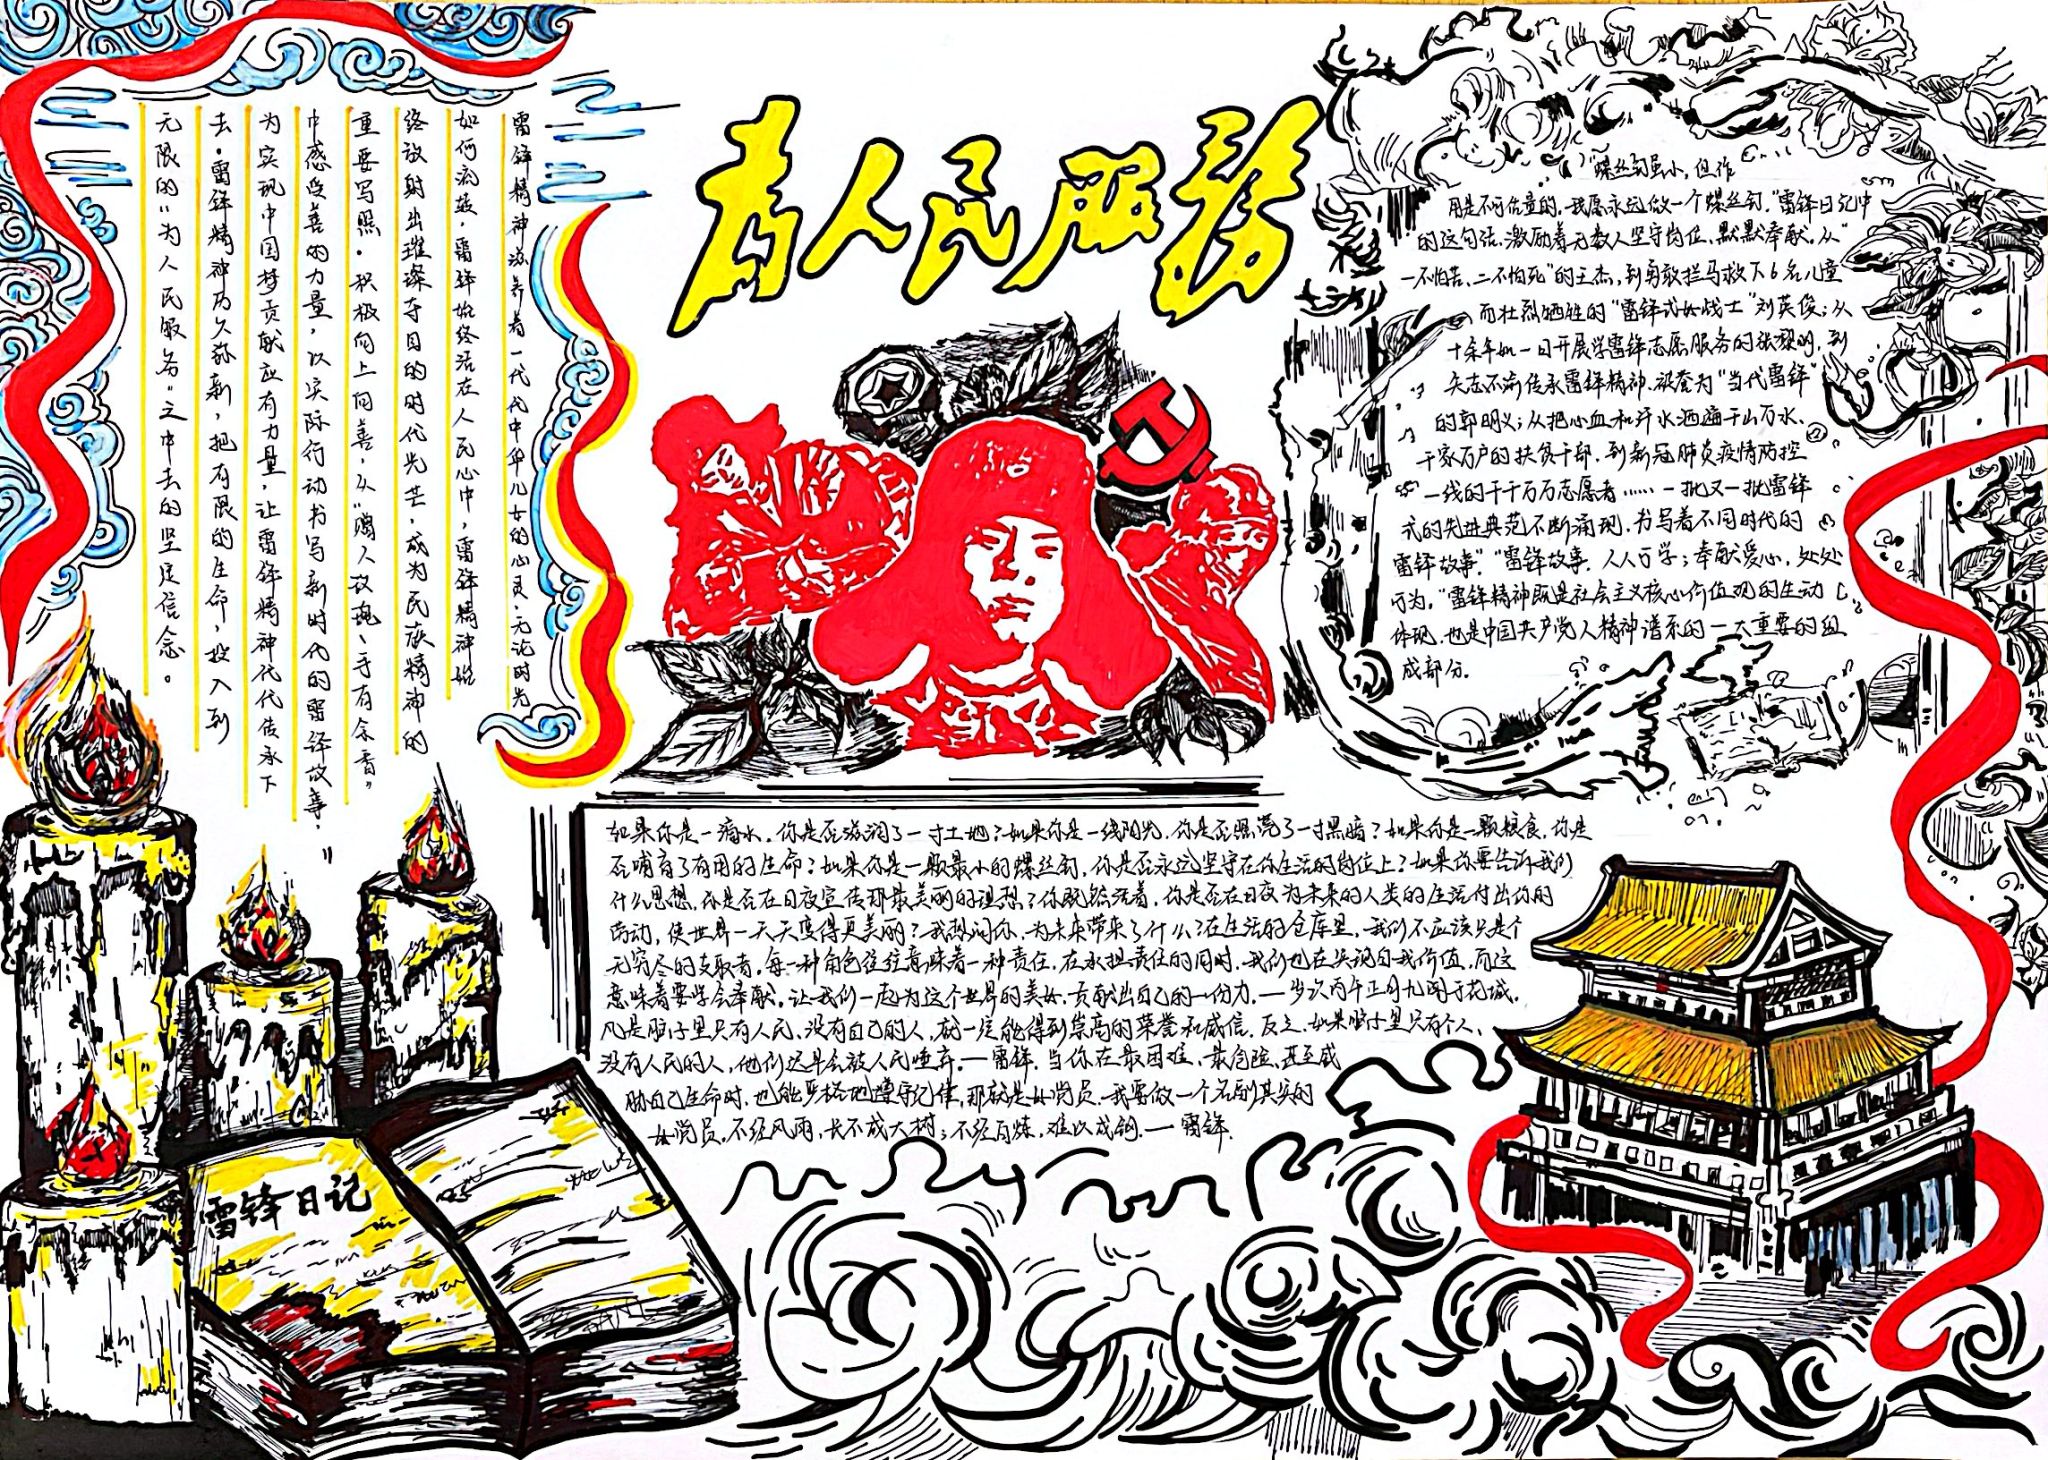 为人民服务
雷锋精神滋养着一代代中华儿女的心灵.无论时光
如何流转,雷锋始终活在人民心中,雷锋精神始
终放射出璀璨夺目的时代光芒,成为民族精神的
重要写照.积极向上向善,从“赠人玫瑰、手有余香”
中感受善的力量,以实际行动书写新时代的雷锋故事.”
为实现中国梦贡献应有力量,让雷锋精神代代传承下
去.雷锋精神历久弥新,把有限的生命,投入到
无限的“为人民服务”之中去的坚定信念。
“螺丝钉虽小,但作
用是不可估量的.我愿永远做一个螺丝钉.”雷锋日记中
的这句话.激励着无数人坚守岗位、默默奉献.从“
一不怕苦、二不怕死”的王杰,到勇敢拦马救下6名儿童
而壮烈牺牲的“雷锋式好战士”刘英俊;从
十余年如一日开展学雷锋志愿服务的张黎明,到
矢志不渝传承雷锋精神.被誉为“当代雷锋”
的郭明义;从把心血和汗水洒遍千山万水、
千家万户的扶贫干部.到新冠肺炎疫情防控
一线的千千万万志愿者……一批又一批雷锋
式的先进典范不断涌现.书写着不同时代的
雷锋故事.“雷锋故事.人人可学;奉献爱心,处处
可为.”雷锋精神既是社会主义核心价值观的生动
体现.也是中国共产党人精神谱系的一大重要的组
成部分.
如果你是一滴水.你是否滋润了一寸土地?如果你是一线阳光.你是否照亮了一寸黑暗?如果你是一颗粮食.你是
否哺育了有用的生命?如果你是一颗最小的螺丝钉.你是否永远坚守在你生活的岗位上?如果你要告诉我们
什么思想.你是否在日夜宣传那最美丽的理想?你既然活着.你是否在日夜为未来的人类的生活付出你的
劳动,使世界一天天变得更美丽?我想问你.为未来带来了什么?在生活的仓库里.我们不应该只是个
无穷尽的支取者.每一种角色往往意味着一种责任.在承担责任的同时.我们也在实现自我价值.而这
意味着要学会奉献.让我们一起为这个世界的美好.贡献出自己的一份力.一岁次丙午正月九
凡是脑子里只有人民、没有自己的人,就一定能得到崇高的荣誉和威信.反之.如果脑子里只有个人、
没有人民的人,他们迟早会被人民唾弃.—雷锋.当你在最困难、最危险、甚至威
胁自己生命时.也能严格地遵守纪律,那就是好党员.我要做一个名副其实的
好党员.不经风雨,长不成大树;不经百炼,难以成钢.—雷锋.
雷锋日记